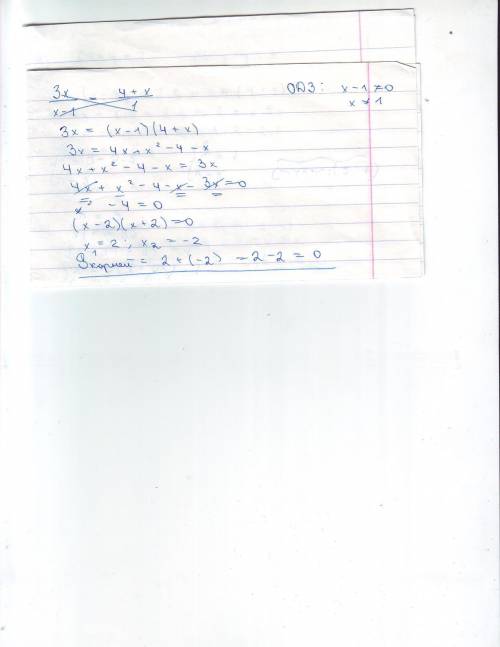 3x/(x-1) = (4+x)/1
ОДЗ: x-1≠0
x≠1
3x = (x-1)(4+x)
3x = 4x+x²-4-x
4x+x²-4-x = 3x
4x+x²-4-x-3x=0
x² -4=0
(x-2)(x+2)=0
x₁=2, x₂=-2
корней = 2+(-2) = 2-2 = 0